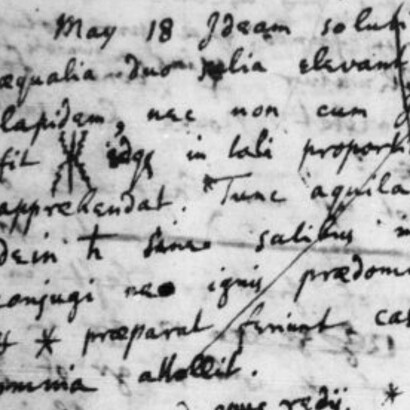 May 18 Ideam solut
æqualia duo salia elevant
lapidem, nec non cum
fit idqꝫ in tali proporti
apprehendat. Tunc aquila
dein ♄ sine salibus i
conjugi nec ignis prædomi
♃ * præparat feriunt cas
omnia attollit.
opus redij. *